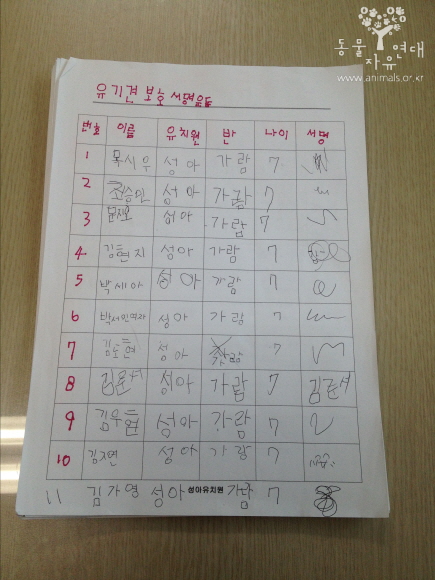 동물
자유연대
www.animals.or.kr
유기견 보호 서명운동
번호 이름 유치원 반 나이 서명
1 목시우 성아 가람 7
2 최승민 성아 가람 7
3 성아 가람 7
4 김현지 성아 가람 7
5 박세아 성아 가람 7
6 박서인여자 성아 가람 7
7 김도현 성아 가람 7
8 김윤서 성아 가람 7 김윤서
9 김우현 성아 가람 7
10 김지연 성아 가람 7
성아유치원
11 김가영 성아 가람 7